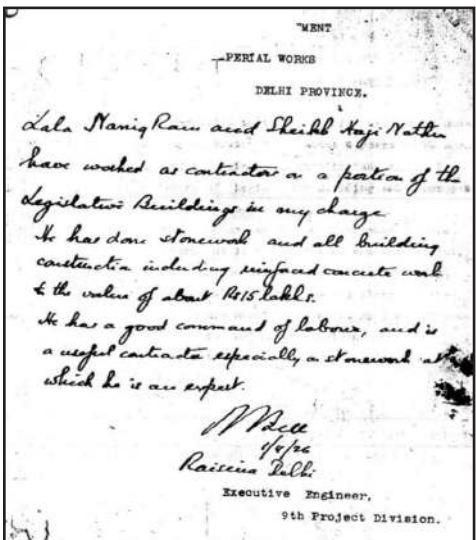 MENT
PERIAL WORKS
DELHI PROVINCE.
Lala Naniq Ram and Sheikh Haji Nathu
have worked as contractors on a portion of the
Legislative Buildings in my charge
He has done stonework and all building
construction including reinforced concrete work
to the value of about Rs 15 lakhs.
He has a good command of labour, and is
a useful contractor especially on stonework at
which he is an expert.
1/4/26
Raisina Delhi
Executive Engineer,
9th Project Division.